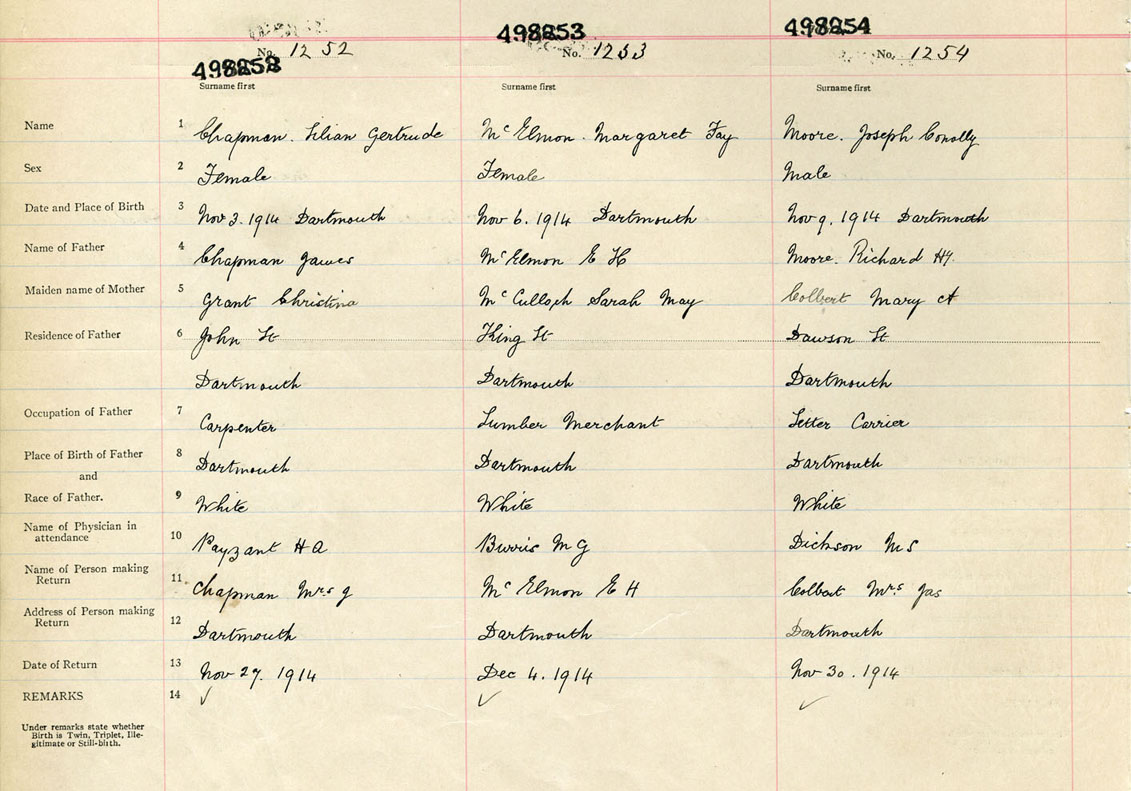 498253 498254
No. 1252 No. 1253 No. 1254
498252
Surname first Surname first Surname first
Name 1 Chapman. Lilian Gertrude McElmon. Margaret Fay Moore. Joseph Conolly
Sex 2 Female Female Male
Date and Place of Birth 3 Nov 3. 1914 Dartmouth Nov 6. 1914 Dartmouth Nov 9. 1914 Dartmouth
Name of Father 4 Chapman James McElmon E H Moore. Richard Hy.
Maiden name of Mother 5 Grant Christina McCulloch Sarah May Colbert Mary A
Residence of Father 6 John St King St Dawson St
Dartmouth Dartmouth Dartmouth
Occupation of Father 7 Carpenter Lumber Merchant Letter Carrier
Place of Birth of Father 8 Dartmouth Dartmouth Dartmouth
and
Race of Father. 9 White White White
Name of Physician in
attendance 10 Payzant H A Burris M G Dickson M S
Name of Person making
Return 11 Chapman Mrs J McElmon E H Colbert Mrs. Jas
Address of Person making
Return 12 Dartmouth Dartmouth Dartmouth
Date of Return 13 Nov 27. 1914 Dec 4. 1914 Nov 30. 1914
REMARKS 14 ✓ ✓ ✓
Under remarks state whether
Birth is Twin, Triplet, Ille-
gitimate or Still-birth.